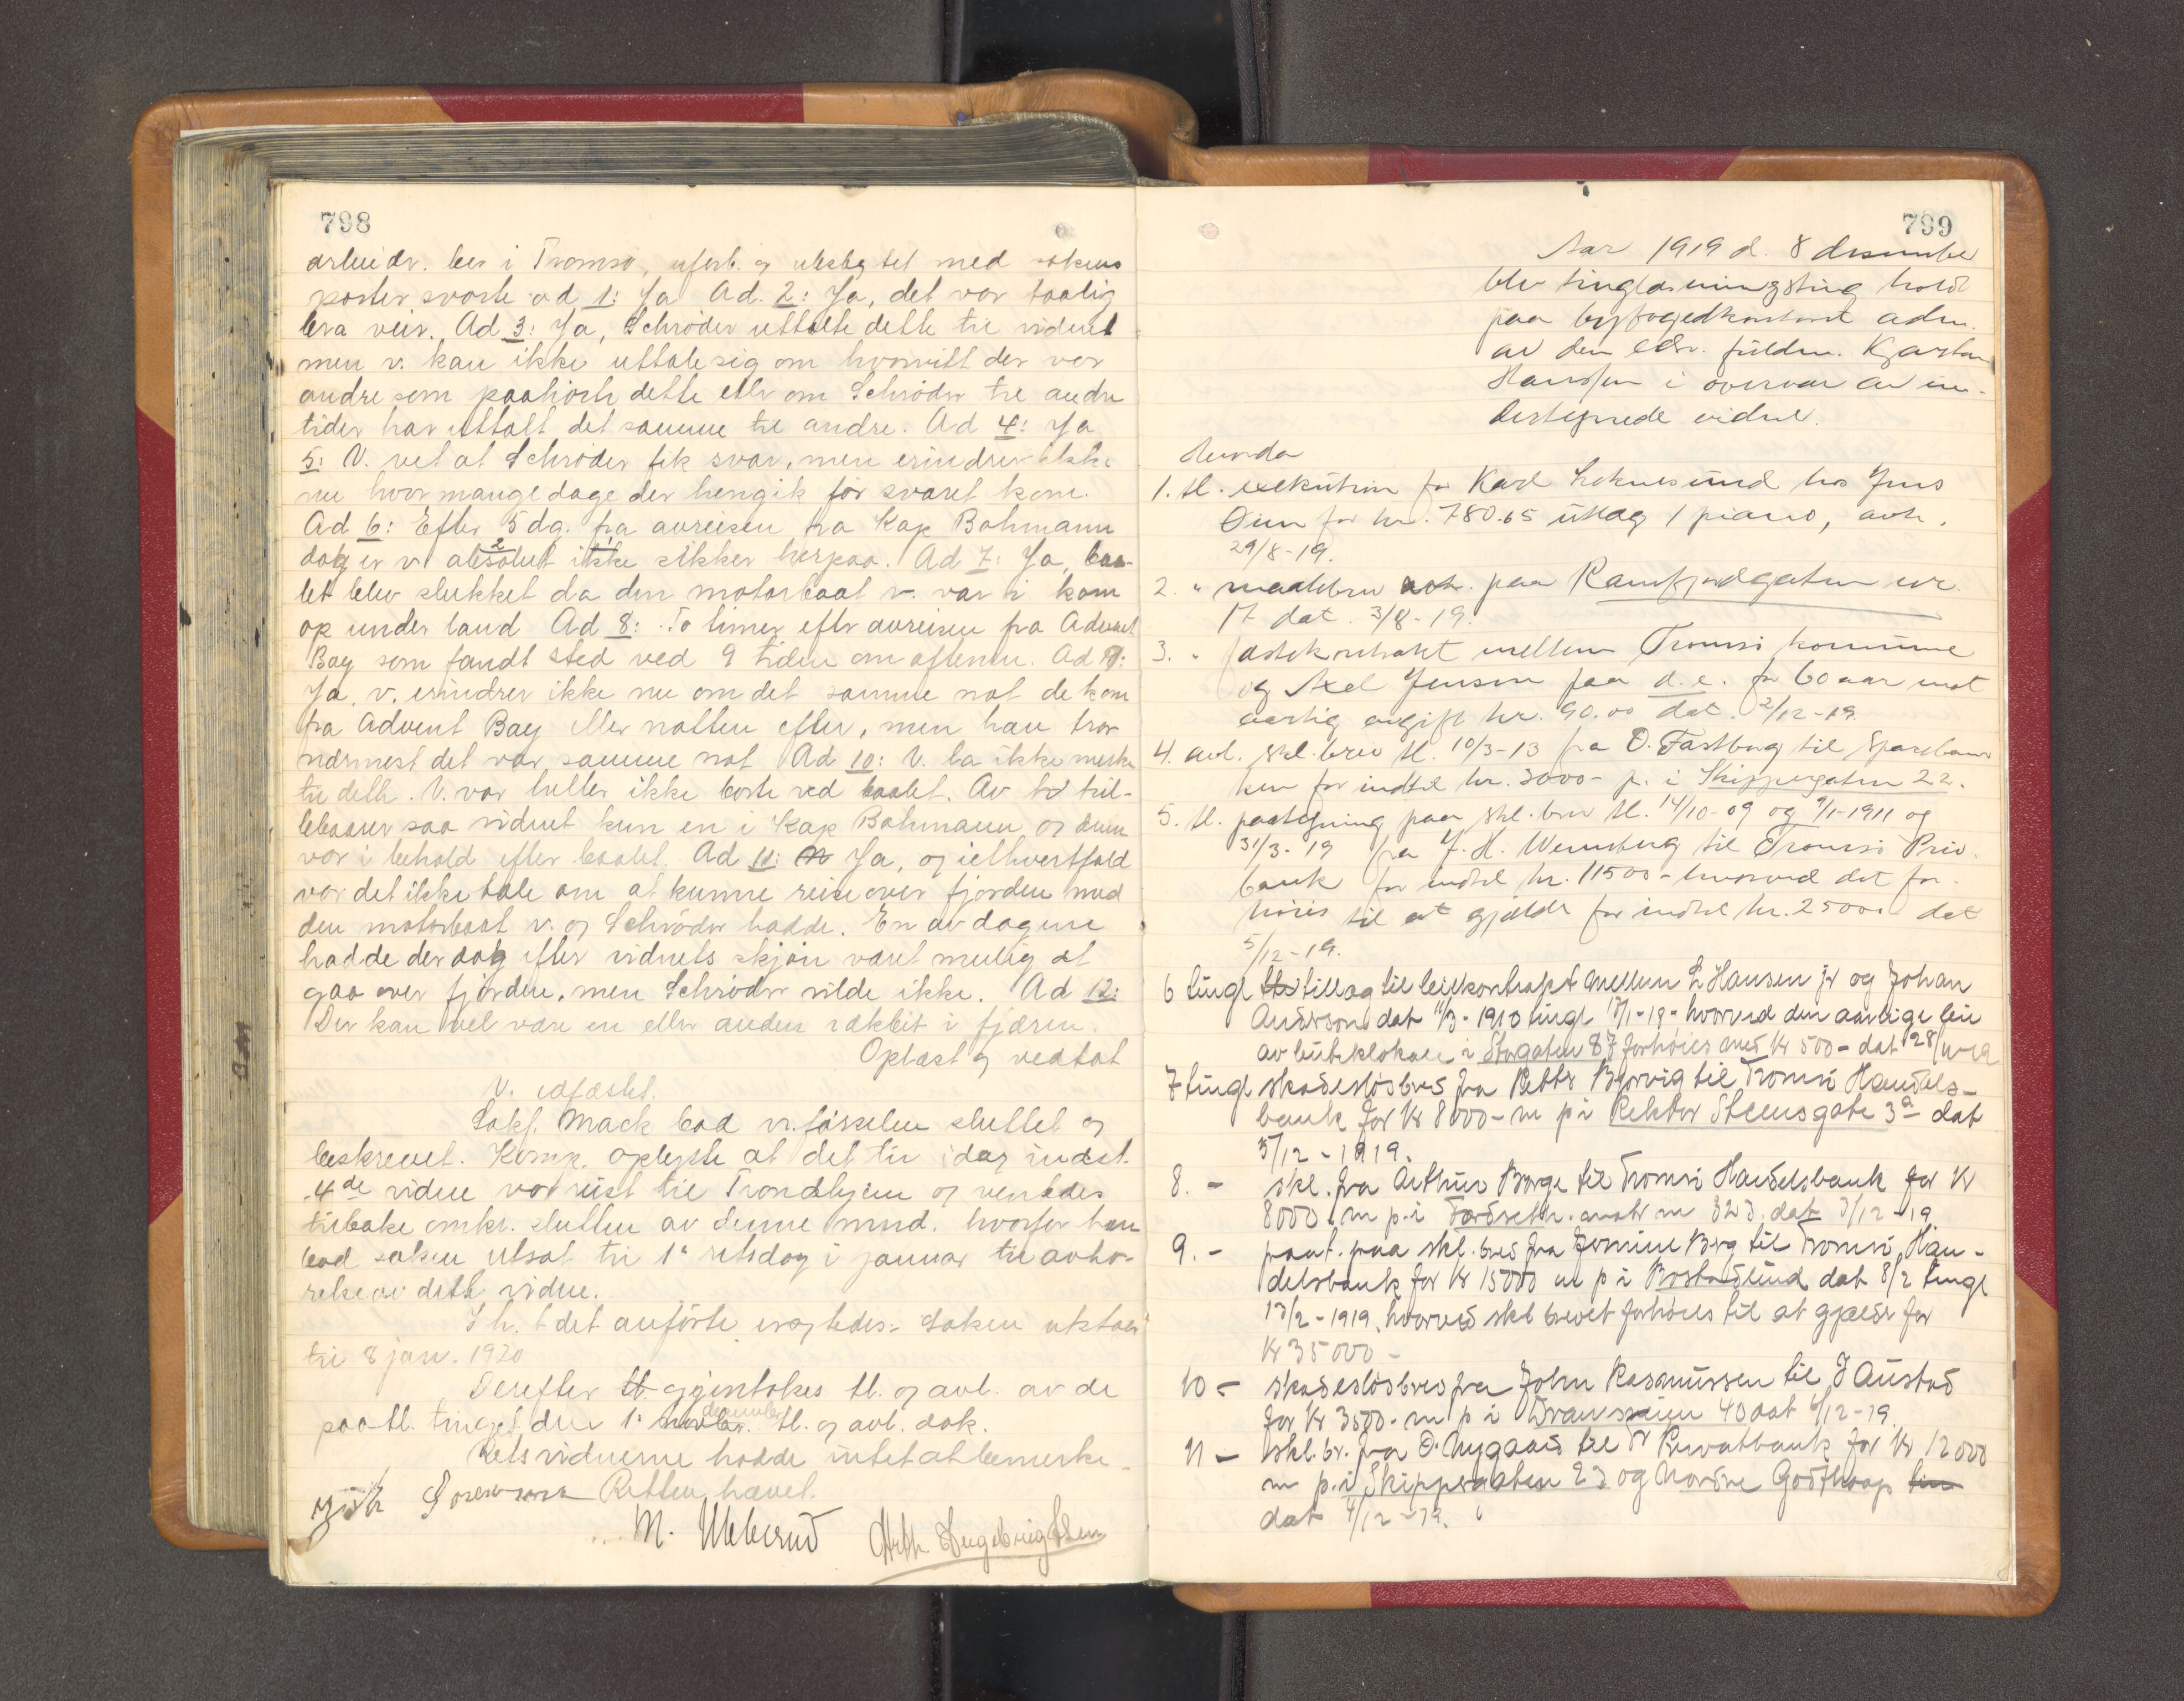 798
arbeidr. bor i Tromsø, uforb. og ubeslegtet med sakens
parter svarte ad 1: Ja Ad. 2: Ja, det var taalig
bra veir. Ad 3: Ja, Schrøder uttalte dette til vidnet
men v. kan ikke uttale sig om hvorvitt der var
andre som paahørte dette eller om Schrøder til andre
tider har uttalt det samme til andre. Ad 4: Ja
5: V. vet at Schrøder fik svar, men erindrer ikke
nu hvor mange dage der hengik før svaret kom.
Ad 6: Efter 5 dg. fra avreisen fra Kap Bohmann
dog er v. absolut ikke sikker herpaa. Ad 7: Ja, baa-
let blev slukket da den motorbaat v. var i kom
op under land Ad 8: To timer efter avreisen fra Advent
Bay som fandt sted ved 9 tiden om aftenen. Ad 9:
Ja, v. erindrer ikke nu om det samme nat de kom
fra Advent Bay eller natten efter, men han tror
nærmest det var samme nat Ad 10: V. la ikke merke
til dette. V. var heller ikke borte ved baalet. Av to tril-
lebaarer saa vidnet kun en i Kap Bohmann og denne
var i behold efter baalet. Ad 11: Ja, og i ethvertfald
var det ikke tale om at kunne reise over fjorden med
den motorbaat v. og Schrøder hadde. En av dagene
hadde der dog efter vidnets skjøn været mulig at
gaa over fjorden, men Schrøder vilde ikke. Ad 12:
Der kan vel være en eller anden rækbit i fjæren.
Oplæst og vedtat
V. edfæstet.
Sakf. Mack bad v.førselen sluttet og
beskrevet. Komp. oplyste at det til idag indst.
4de vidne var reist til Trondhjem og ventedes
tilbake omkr. slutten av denne mnd. hvorfor han
bad saken utsat til 1ste retsdag i januar til avhø-
relse av dette vidne.
I h. t. det anførte eragtedes: Saken utstaar
til 8 jan. 1920
Derefter gjentokes tl. og avl. av de
paa tl. tinget den 1. december tl. og avl. dok.
Retsvidnerne hadde intet at bemerke.
Retten hævet.
M. Ullerud
799
Aar 1919 d. 8 desember
blev tinglæsningsting hold
paa byfogedkontoret adm.
av den edsv. fuldm. Kjartan
Hanssen i overvær av un-
dertegnede vidne.
Hvorda
1. tl. exekution for Karl Loknesund hos Jens
Oien for kr. 780.65 utlæg 1 piano, avh.
29/8-19.
2. " maalebrev paa Ramfjordgaten nr
17 dat. 3/8-19.
3. " fæstekontrakt mellem Tromsø kommune
og Axel Jensen paa d. e. for 60 aar mot
aarlig avgift kr. 90.00 dat. 2/12-19.
4. avl. skl. brev tl. 10/3-13 fra O. Fastborg til Sparebanken
ken for indtil kr. 3000- p. i Skippergaten 22.
5. tl. paategning paa skl. brev tl. 14/10-09 og 9/1-1911 og
31/3-19 fra J. H. Wennberg til Tromsø Priv.
bank for indtil kr. 11500- hvorved det for-
høies til at gjælde for indtil kr. 25000 dat
5/12-19.
6 tingl tillæg til leiekontrakt mellem L Hansen jr og Johan
Anderson dat 11/3-1910 tingl 13/1-19- hvorved den aarlige leie
av butiklokale i Storgaten 87 forhøies med kr 500- dat 28/11-19
7 tingl skadesløsbrev fra Petter Bjervig til Tromsø Handels-
bank for kr 8000- m p i Rektor Steensgate 3a dat
5/12-1919.
8. - skl. fra Arthur Borge til Tromsø Handelsbank for kr
8000 m p. i matr nr 323, dat 3/12-19
9. - paat. paa skl. brev fra Jermine Berg til Tromsø Han-
delsbank for kr 15000 m p i Bostadlind dat 8/2 tingl
13/2-1919, hvorved skl brevet forhøies til at gjælde for
kr 35000-
10 - skadesløsbrev fra John Rasmussen til J Austad
for kr 3500- m p i Dransveien 40 dat 6/12-19.
11 - skl. br. fra O. Nygaard til Tr Privatbank for kr 12000
m p. i Skippergaten 23 og Nordre Godthaap
dat 4/12-19.